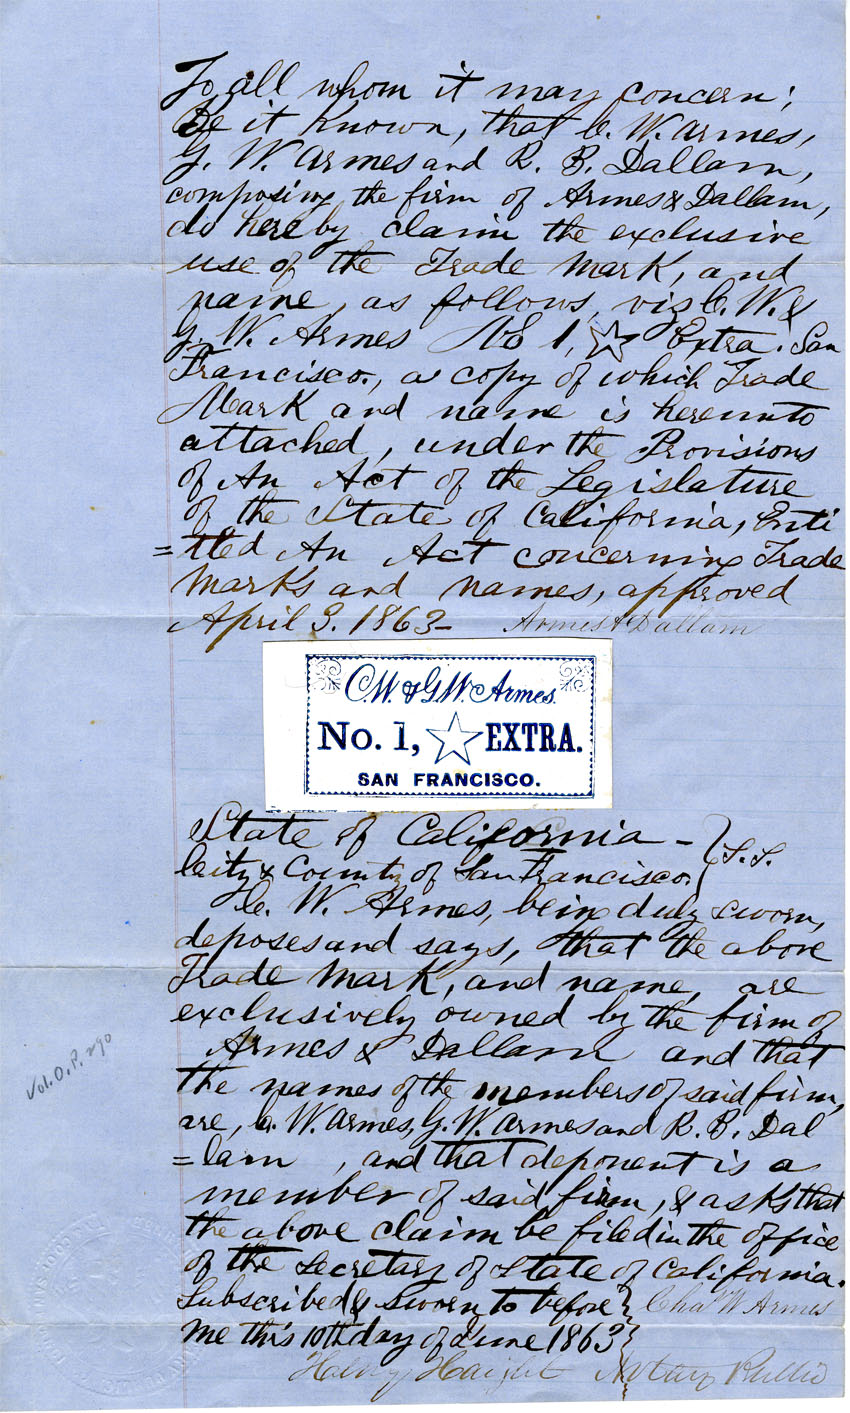 To all whom it may concern;
Be it Known, that C. W. Armes,
G. W. Armes and R. B. Dallam,
composing the firm of Armes & Dallam,
do hereby claim the exclusive
use of the Trade Mark, and
name, as follows, viz C. W. &
G. W. Armes No 1, ☆ Extra. San
Francisco., a copy of which Trade
Mark and name is hereunto
attached, under the Provisions
of An Act of the Legislature
of the State of California, Enti
=tled An Act concerning Trade
Marks and names, approved
April 3. 1863– Armes & Dallam
C.W. & G.W. Armes.
No. 1, ☆ EXTRA.
SAN FRANCISCO.
State of California –
City & County of San Francisco. } S.S.
C. W. Armes, being duly sworn,
deposes and says, that the above
Trade Mark, and name, are
exclusively owned by the firm of
Armes & Dallam and that
the names of the members of said firm,
are, C. W. Armes, G. W. Armes and R. B. Dal
=lam , and that deponent is a
member of said firm, & asks that
the above claim be filed in the office
of the Secretary of State of California.
Subscribed & Sworn to before } Chas W Armes
me this 10th day of June 1863 }
Henry Haight Notary Public
Vol. O. P. 290